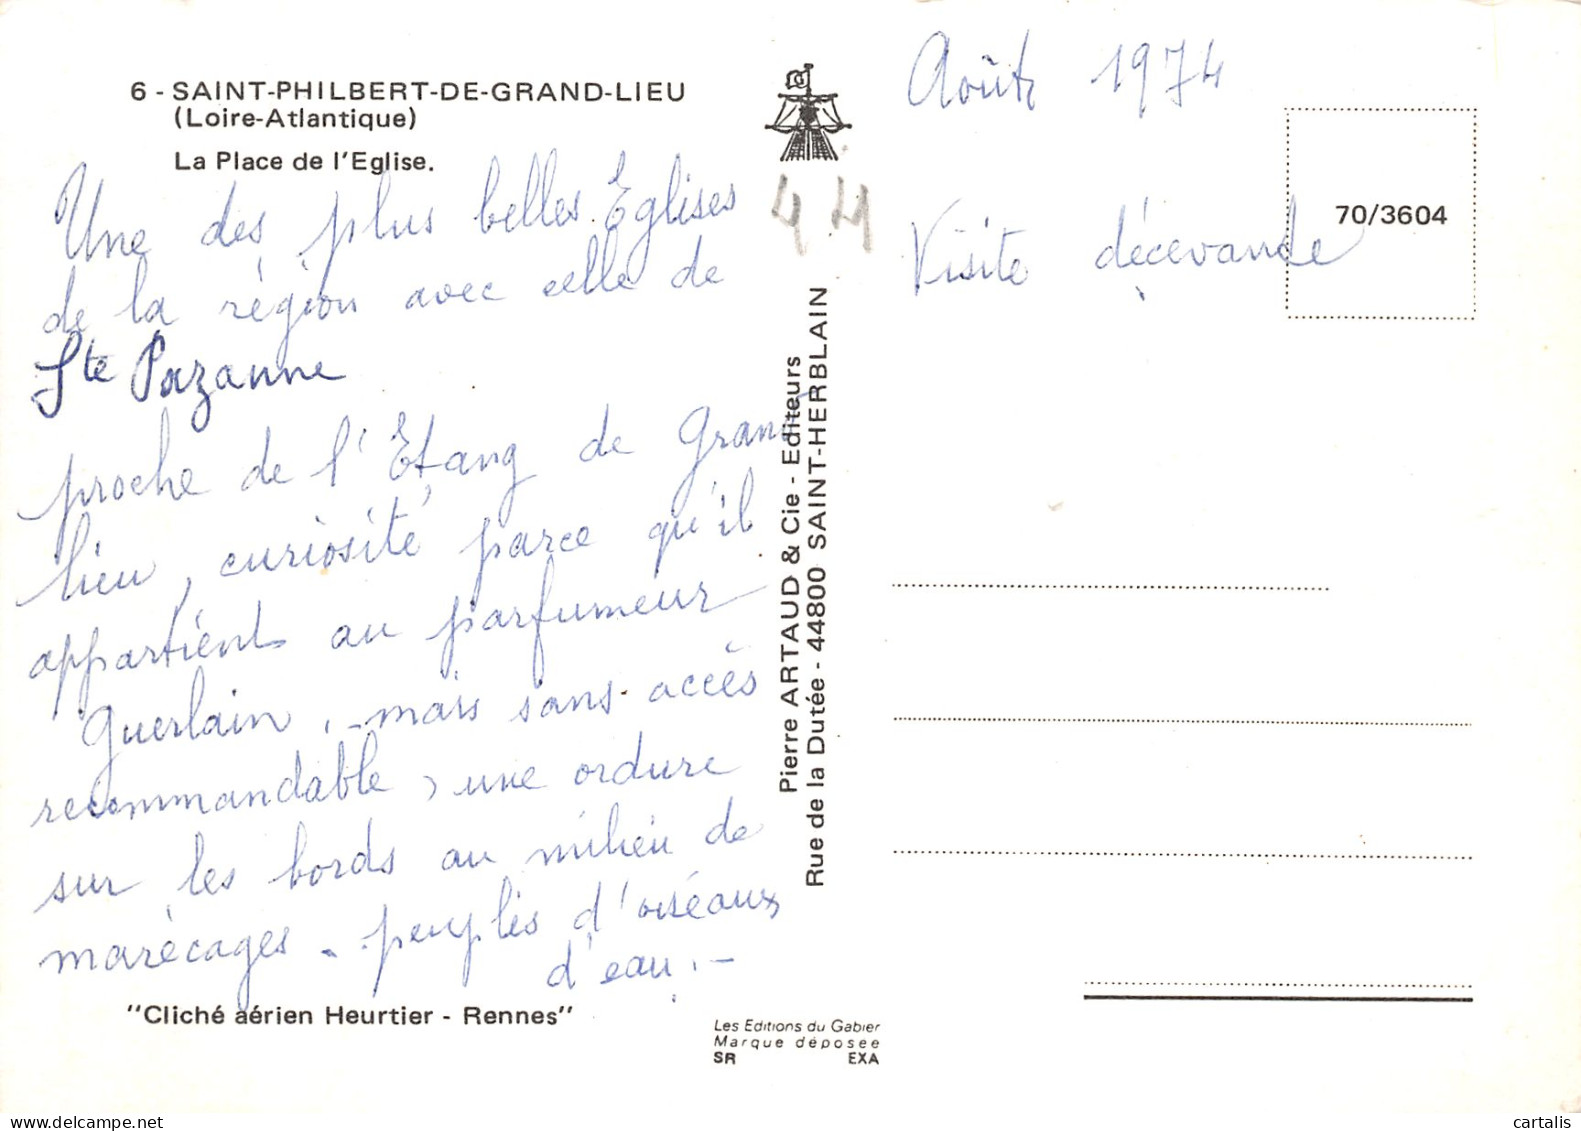 6 - SAINT-PHILBERT-DE-GRAND-LIEU
(Loire-Atlantique)
La Place de l'Eglise.
Une des plus belles Eglises
de la région avec celle de
Ste Pazanne
proche de l'Etang de Grand
lieu, curiosité parce qu'il
appartient au parfumeur
Guerlain, - mais sans accès
recommandable, une ordure
sur les bords au milieu de
marécages - peuplés d'oiseaux
d'eau. -
"Cliché aérien Heurtier - Rennes"
44
Pierre ARTAUD & Cie - Editeurs
Rue de la Dutée - 44800 SAINT-HERBLAIN
Les Editions du Gabier
Marque déposée
SR EXA
Août 1974
Visite décevande
70/3604
cartalis